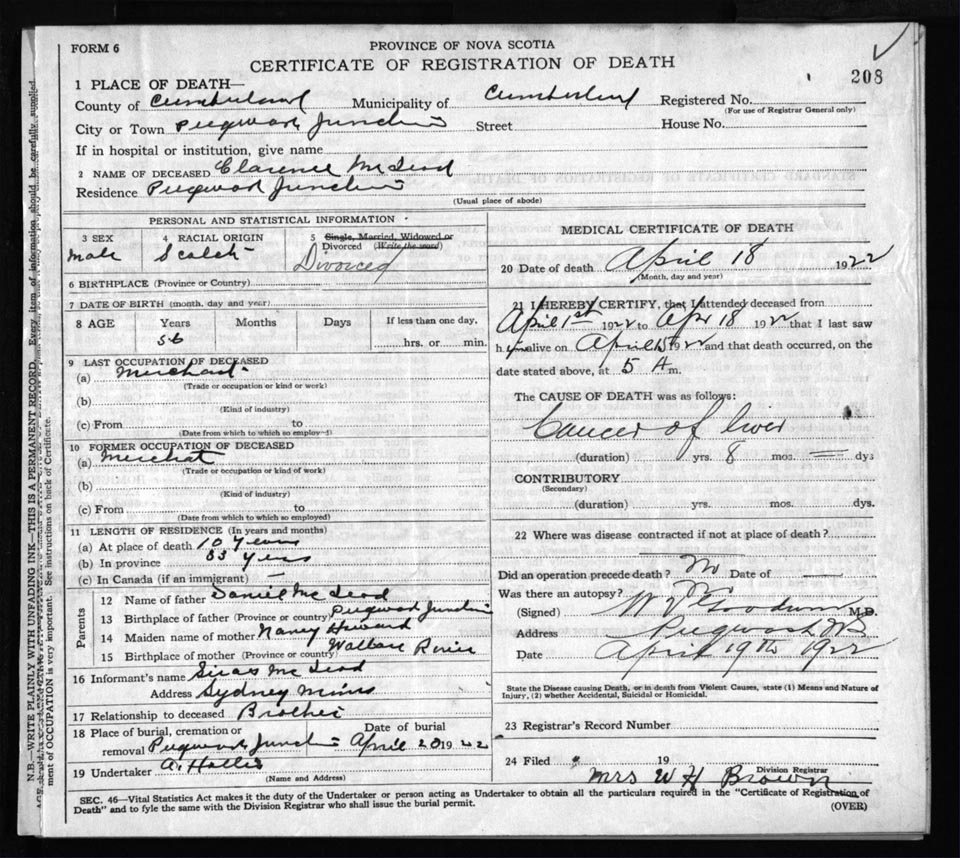 FORM 6
PROVINCE OF NOVA SCOTIA
CERTIFICATE OF REGISTRATION OF DEATH
208
1 PLACE OF DEATH—
County of Cumberland Municipality of Cumberland Registered No.
(For use of Registrar General only)
City or Town Pugwash Junction Street House No.
If in hospital or institution, give name
2 NAME OF DECEASED Clarence McLeod
Residence Pugwash Junction
(Usual place of abode)
PERSONAL AND STATISTICAL INFORMATION
3 SEX 4 RACIAL ORIGIN 5 Single, Married, Widowed or Divorced (Write the word)
Male Scotch Divorced
6 BIRTHPLACE (Province or Country)
7 DATE OF BIRTH (month, day and year)
8 AGE Years Months Days If less than one day,
56 hrs. or min.
9 LAST OCCUPATION OF DECEASED
(a) Merchant
(Trade or occupation or kind or work)
(b)
(Kind of industry)
(c) From to
(Date from which to which so employed)
10 FORMER OCCUPATION OF DECEASED
(a) Merchat
(Trade or occupation or kind of work)
(b)
(Kind of industry)
(c) From to
(Date from which to which so employed)
11 LENGTH OF RESIDENCE (In years and months)
(a) At place of death 10 Years
(b) In province Years
(c) In Canada (if an immigrant) —
Parents
12 Name of father Daniel McLeod
13 Birthplace of father (Province or country) Pugwash Junction
14 Maiden name of mother Nancy Howard
15 Birthplace of mother (Province or country) Wallace River
16 Informant's name McLeod
Address Sydney Mines
17 Relationship to deceased Brother
18 Place of burial, cremation or Date of burial
removal Pugwash Junction April 20 1922
19 Undertaker A. Hollis
(Name and Address)
MEDICAL CERTIFICATE OF DEATH
20 Date of death April 18 1922
(Month, day and year)
21 I HEREBY CERTIFY, that I attended deceased from
April 1st 1922 to Apr 18 1922 that I last saw
him alive on April 1922 and that death occurred, on the
date stated above, at 5 A m.
The CAUSE OF DEATH was as follows:
Cancer of liver
(duration) yrs. 8 mos. — dys
CONTRIBUTORY
(Secondary)
(duration) yrs. mos. dys.
22 Where was disease contracted if not at place of death?
Did an operation precede death? No Date of —
Was there an autopsy?
(Signed) M.D.
Address Pugwash NS
Date April 19th 1922
State the Disease causing Death, or in death from Violent Causes, state (1) Means and Nature of
Injury, (2) whether Accidental, Suicidal or Homicidal.
23 Registrar's Record Number
24 Filed 19
Mrs W H Brown
Division Registrar
SEC. 46—Vital Statistics Act makes it the duty of the Undertaker or person acting as Undertaker to obtain all the particulars required in the "Certificate of Registration of
Death" and to fyle the same with the Division Registrar who shall issue the burial permit.
(OVER)
N.B.—WRITE PLAINLY WITH UNFADING INK—THIS IS A PERMANENT RECORD. Every item of information should be carefully supplied.
ment of OCCUPATION is very important. See instructions on back of Certificate.